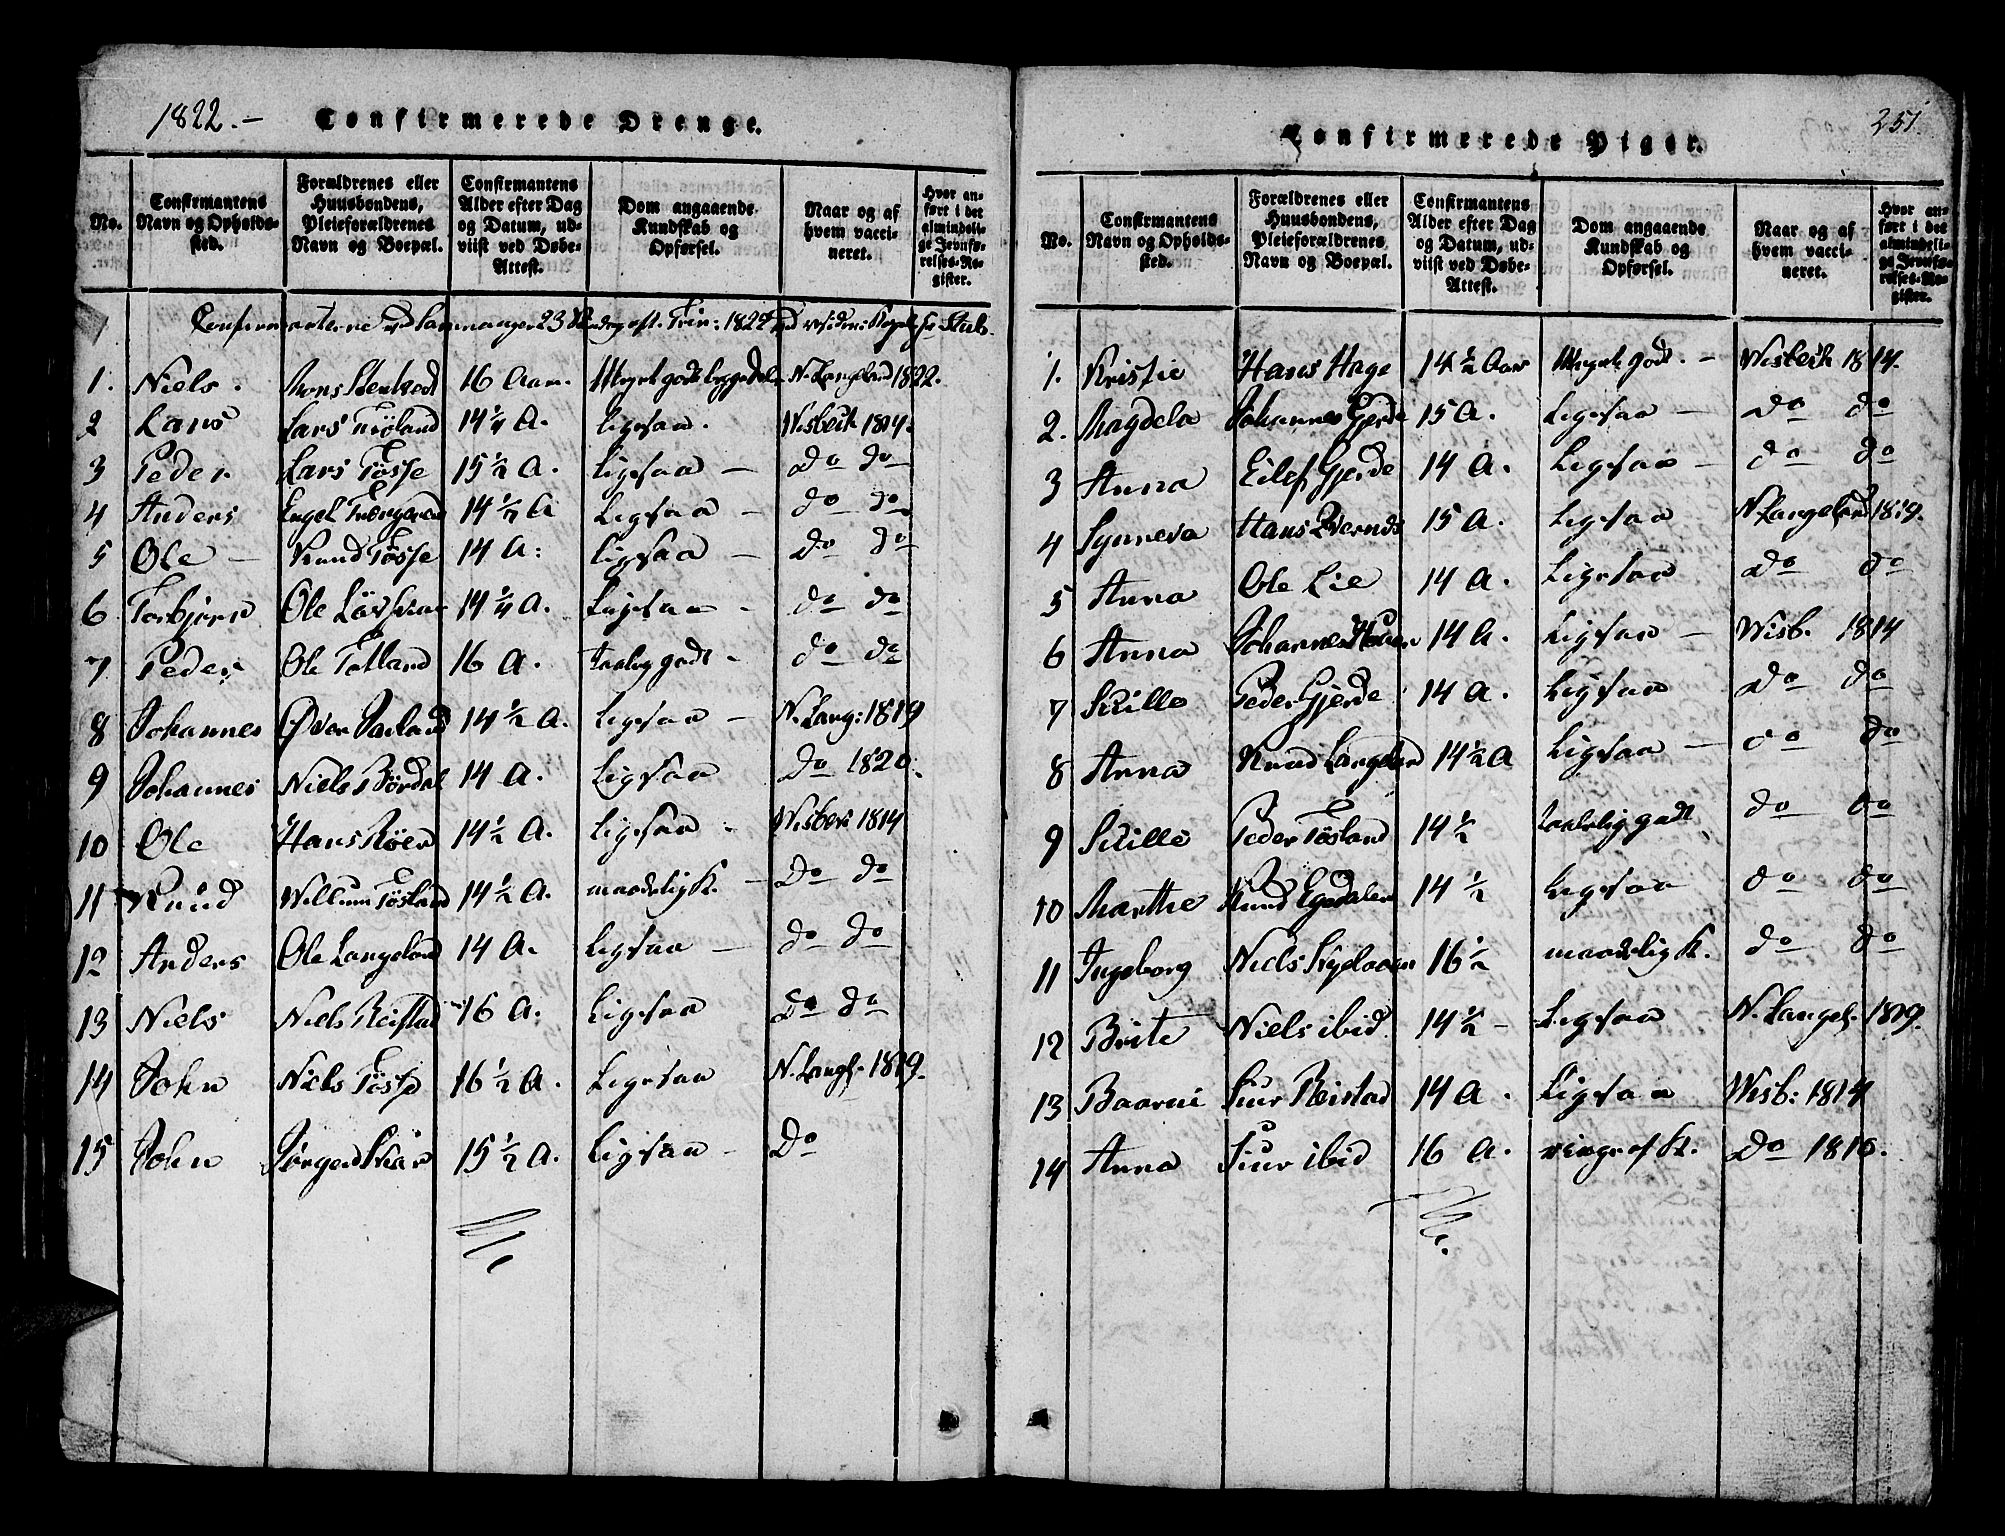 1822.-
Confirmerede Drenge.
No.
Confirmantens Navn og Opholdssted.
Forældrenes eller Huusbondens, Pleieforældrenes Navn og Boepæl.
Confirmantens Alder efter Dag og Datum, udviist ved Døbe-Attest.
Dom angaaende Kundskab og Opførsel.
Naar og af hvem vaccineret.
Hvor anført i det almindelige Jevnførelses-Register.
Confirmanterne ved Samnanger 23 Søndag eft. Trin: 1822
1. Niels. Mons 16 Aar. Meget gode N. Langeland 1822.
2 Lars Lars 14 1/4 A. Ligesaa. Wisbech 1814.
3 Peder Lars Tøsse 15 1/2 A. Ligesaa - Do do
4 Anders Engel 14 1/2 A Ligesaa - do do
5 Ole - Knud Tøsse 14 A: Ligesaa - Do do
6 Torbjørn Ole 14 1/4 A. Ligesaa - do do
7 Peder Ole Totland 16 A. godt - do do
8 Johannes 14 1/2 A. Ligesaa - N. Lang: 1819
9 Johannes Niels Børdal 14 A. Ligesaa Do 1820.
10 Ole Hans Røen 14 1/2 A. Ligesaa - Wisbech 1814
11 Knud Willum Tøsland 14 1/2 A. maadelig K. - Do do
12 Anders Ole Langeland 14 A. Ligesaa - do do
13 Niels Niels Reistad 16 A. Ligesaa Do do
14 John Niels Tøsse 16 1/2 A. Ligesaa N. Langl. 1819.
15 John Jørgen 15 1/2 A. Ligesaa - Do
251
Confirmerede Piger.
No.
Confirmantens Navn og Opholdssted.
Forældrenes eller Huusbondens, Pleieforældrenes Navn og Boepæl.
Confirmantens Alder efter Dag og Datum, udviist ved Døbe-Attest.
Dom angaaende Kundskab og Opførsel.
Naar og af hvem vaccineret.
Hvor anført i det almindelige Jevnførelses-Register.
1. Kristie Hans Hage 14 1/2 Aar Meget godt. - Wisbech 1814.
2. Magdela Johannes Gjerde 15 A. Ligesaa - do do
3 Anna Eilef Gjerde 14 A. Ligesaa - do do
4 Synneva Hans 15 A. Ligesaa N. Langeland 1819.
5 Anna Ole Lie 14 A. Ligesaa Do do
6 Anna Johannes 14 A. Ligesaa - Wisb. 1814
7 Sicille Peder Gjerde 14 A. Ligesaa Do do
8 Anna Knud Langeland 14 1/2 A Ligesaa - do do
9 Sicille Peder Tøsland 14 1/2 taalelig godt do do
10 Marthe Knud 14 1/2 Ligesaa do do
11 Ingeborg Niels 16 1/2 maadelig K. do do
12 Brite Niels ibid 14 1/2 - Ligesaa N. Langel. 1819.
13 Siur Reistad 14 A. Ligesaa Wisb: 1814
14 Anna Siur ibid 16 A. K. Do 1816.